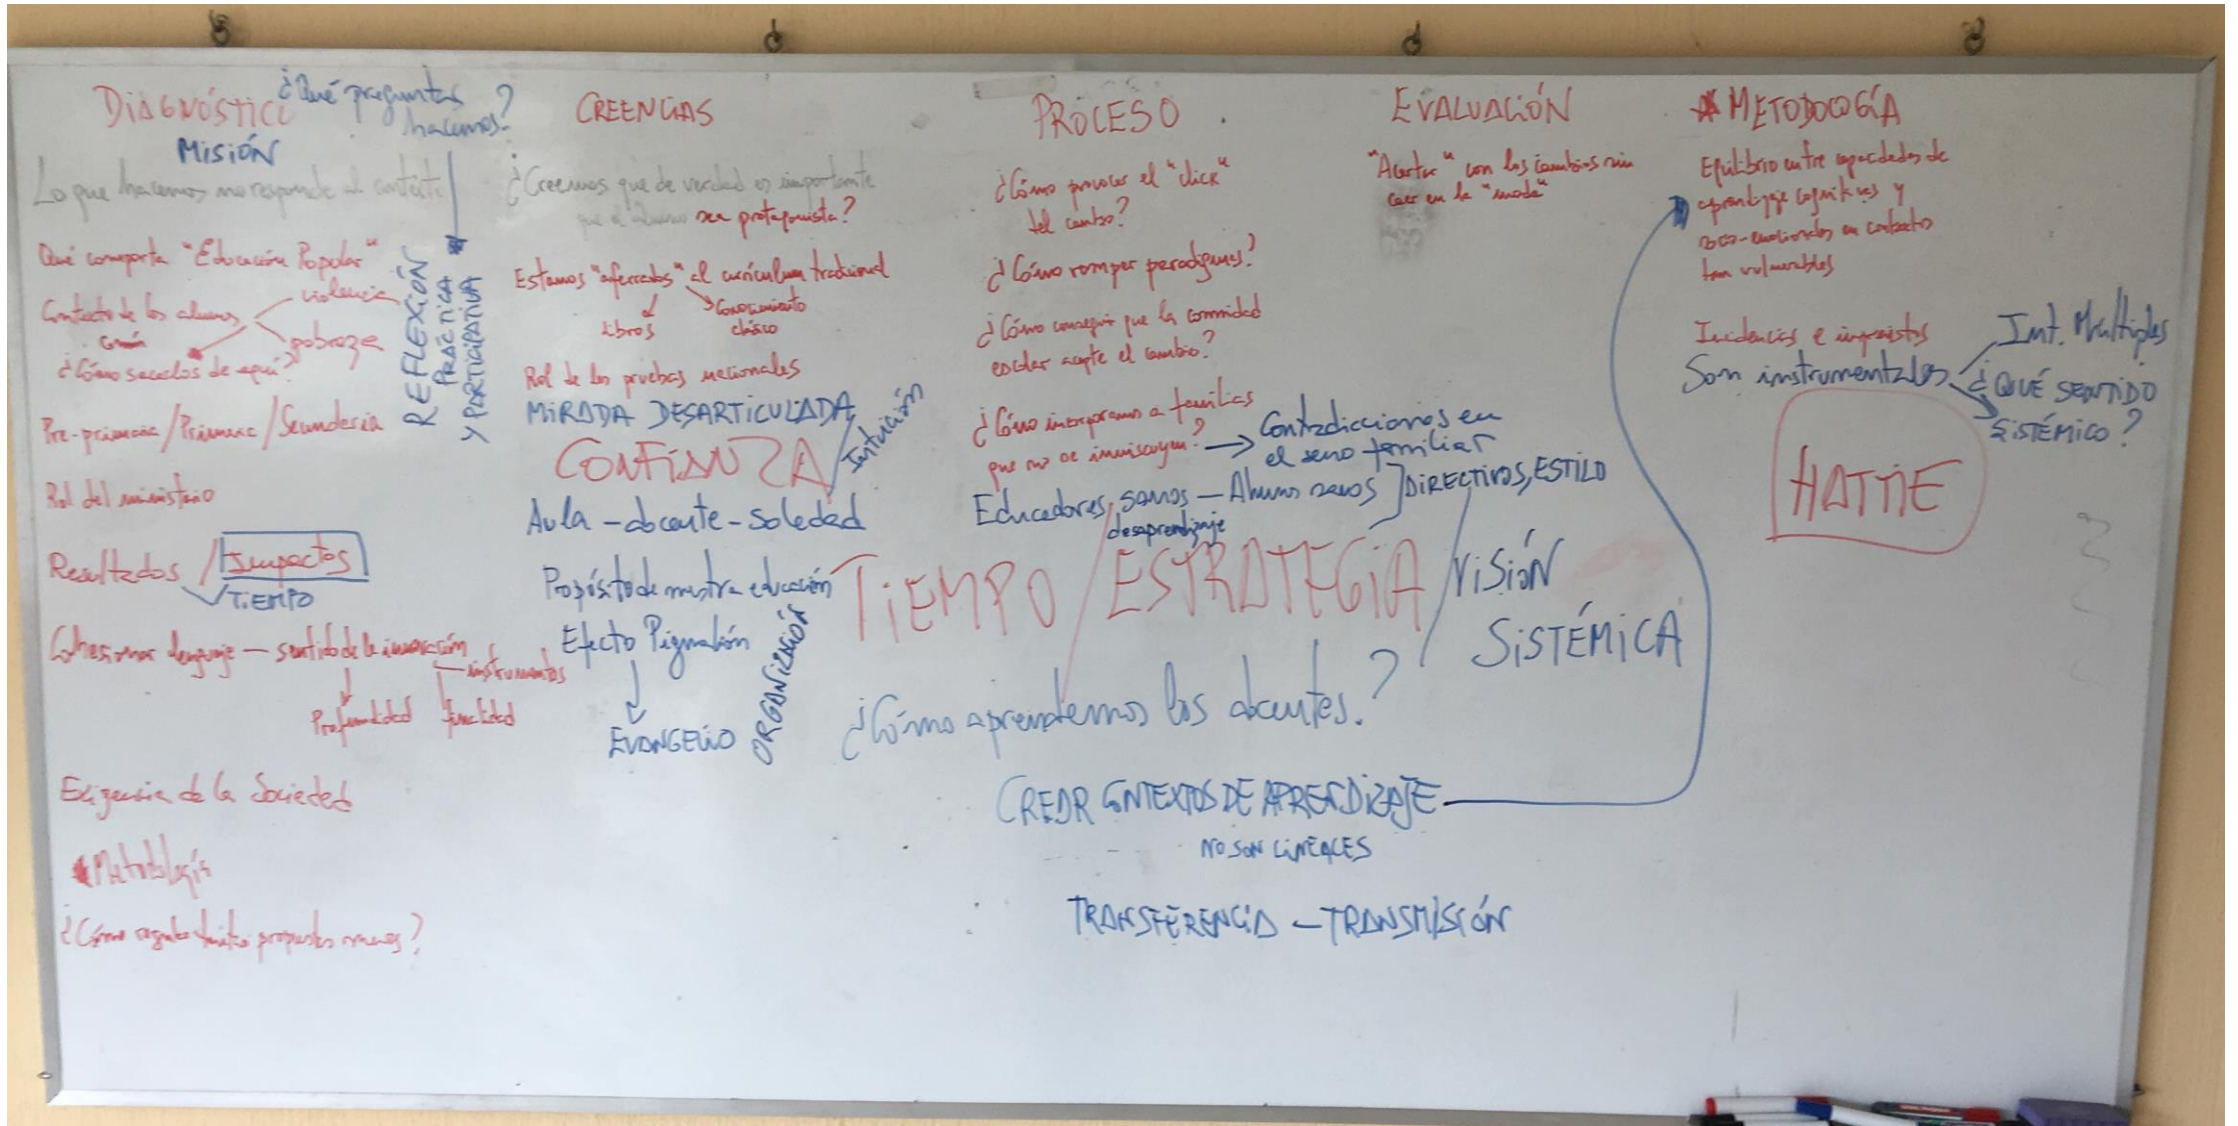 DIAGNÓSTICO
¿Qué preguntas
hacemos?
MISIÓN
Lo que hacemos no responde al contexto
Qué comporta "Educación Popular"
Contexto de los alumnos
violencia
pobreza
¿Cómo sacarlos de aquí?
REFLEXIÓN
PRÁCTICA
Y PARTICIPATIVA
Pre-primaria/Primaria/Secundaria
Rol del ministerio
Resultados / Impactos
TIEMPO
Cohesionar lenguaje — sentido de la innovación
instrumentos
Profundidad
finalidad
Exigencia de la Sociedad
*Metodología
¿Cómo propuestas nuevas?
CREENCIAS
¿Creemos que de verdad es importante
que el alumno sea protagonista?
Estamos "aferrados" al currículum tradicional
Libros
Conocimiento
clásico
Rol de las pruebas nacionales
MIRADA DESARTICULADA
CONFIANZA / Intuición
Aula - docente - soledad
Propósito de nuestra educación
Efecto Pigmalión
EVANGELIO
ORGANIZACIÓN
PROCESO
¿Cómo provocar el "click"
del cambio?
¿Cómo romper paradigmas?
¿Cómo conseguir que la comunidad
escolar acepte el cambio?
¿Cómo incorporamos a familias
que no se inmiscuyen?
Contradicciones en
el seno familiar
Educadores sanos — Alumnos sanos ] DIRECTIVOS, ESTILO
desaprendizaje
TIEMPO / ESTRATEGIA / VISIÓN
SISTÉMICA
¿Cómo aprendemos los docentes?
CREAR CONTEXTOS DE APRENDIZAJE
NO SON LINEALES
TRANSFERENCIA — TRANSMISIÓN
EVALUACIÓN
"Acertar" con los cambios sin
caer en la "moda"
*METODOLOGÍA
Equilibrio entre capacidades de
aprendizaje cognitivas y
socio-emocionales en contextos
tan vulnerables
Incidencias e imprevistos
Son instrumentales
Int. Múltiples
¿QUÉ SENTIDO
SISTÉMICO?
HATTIE